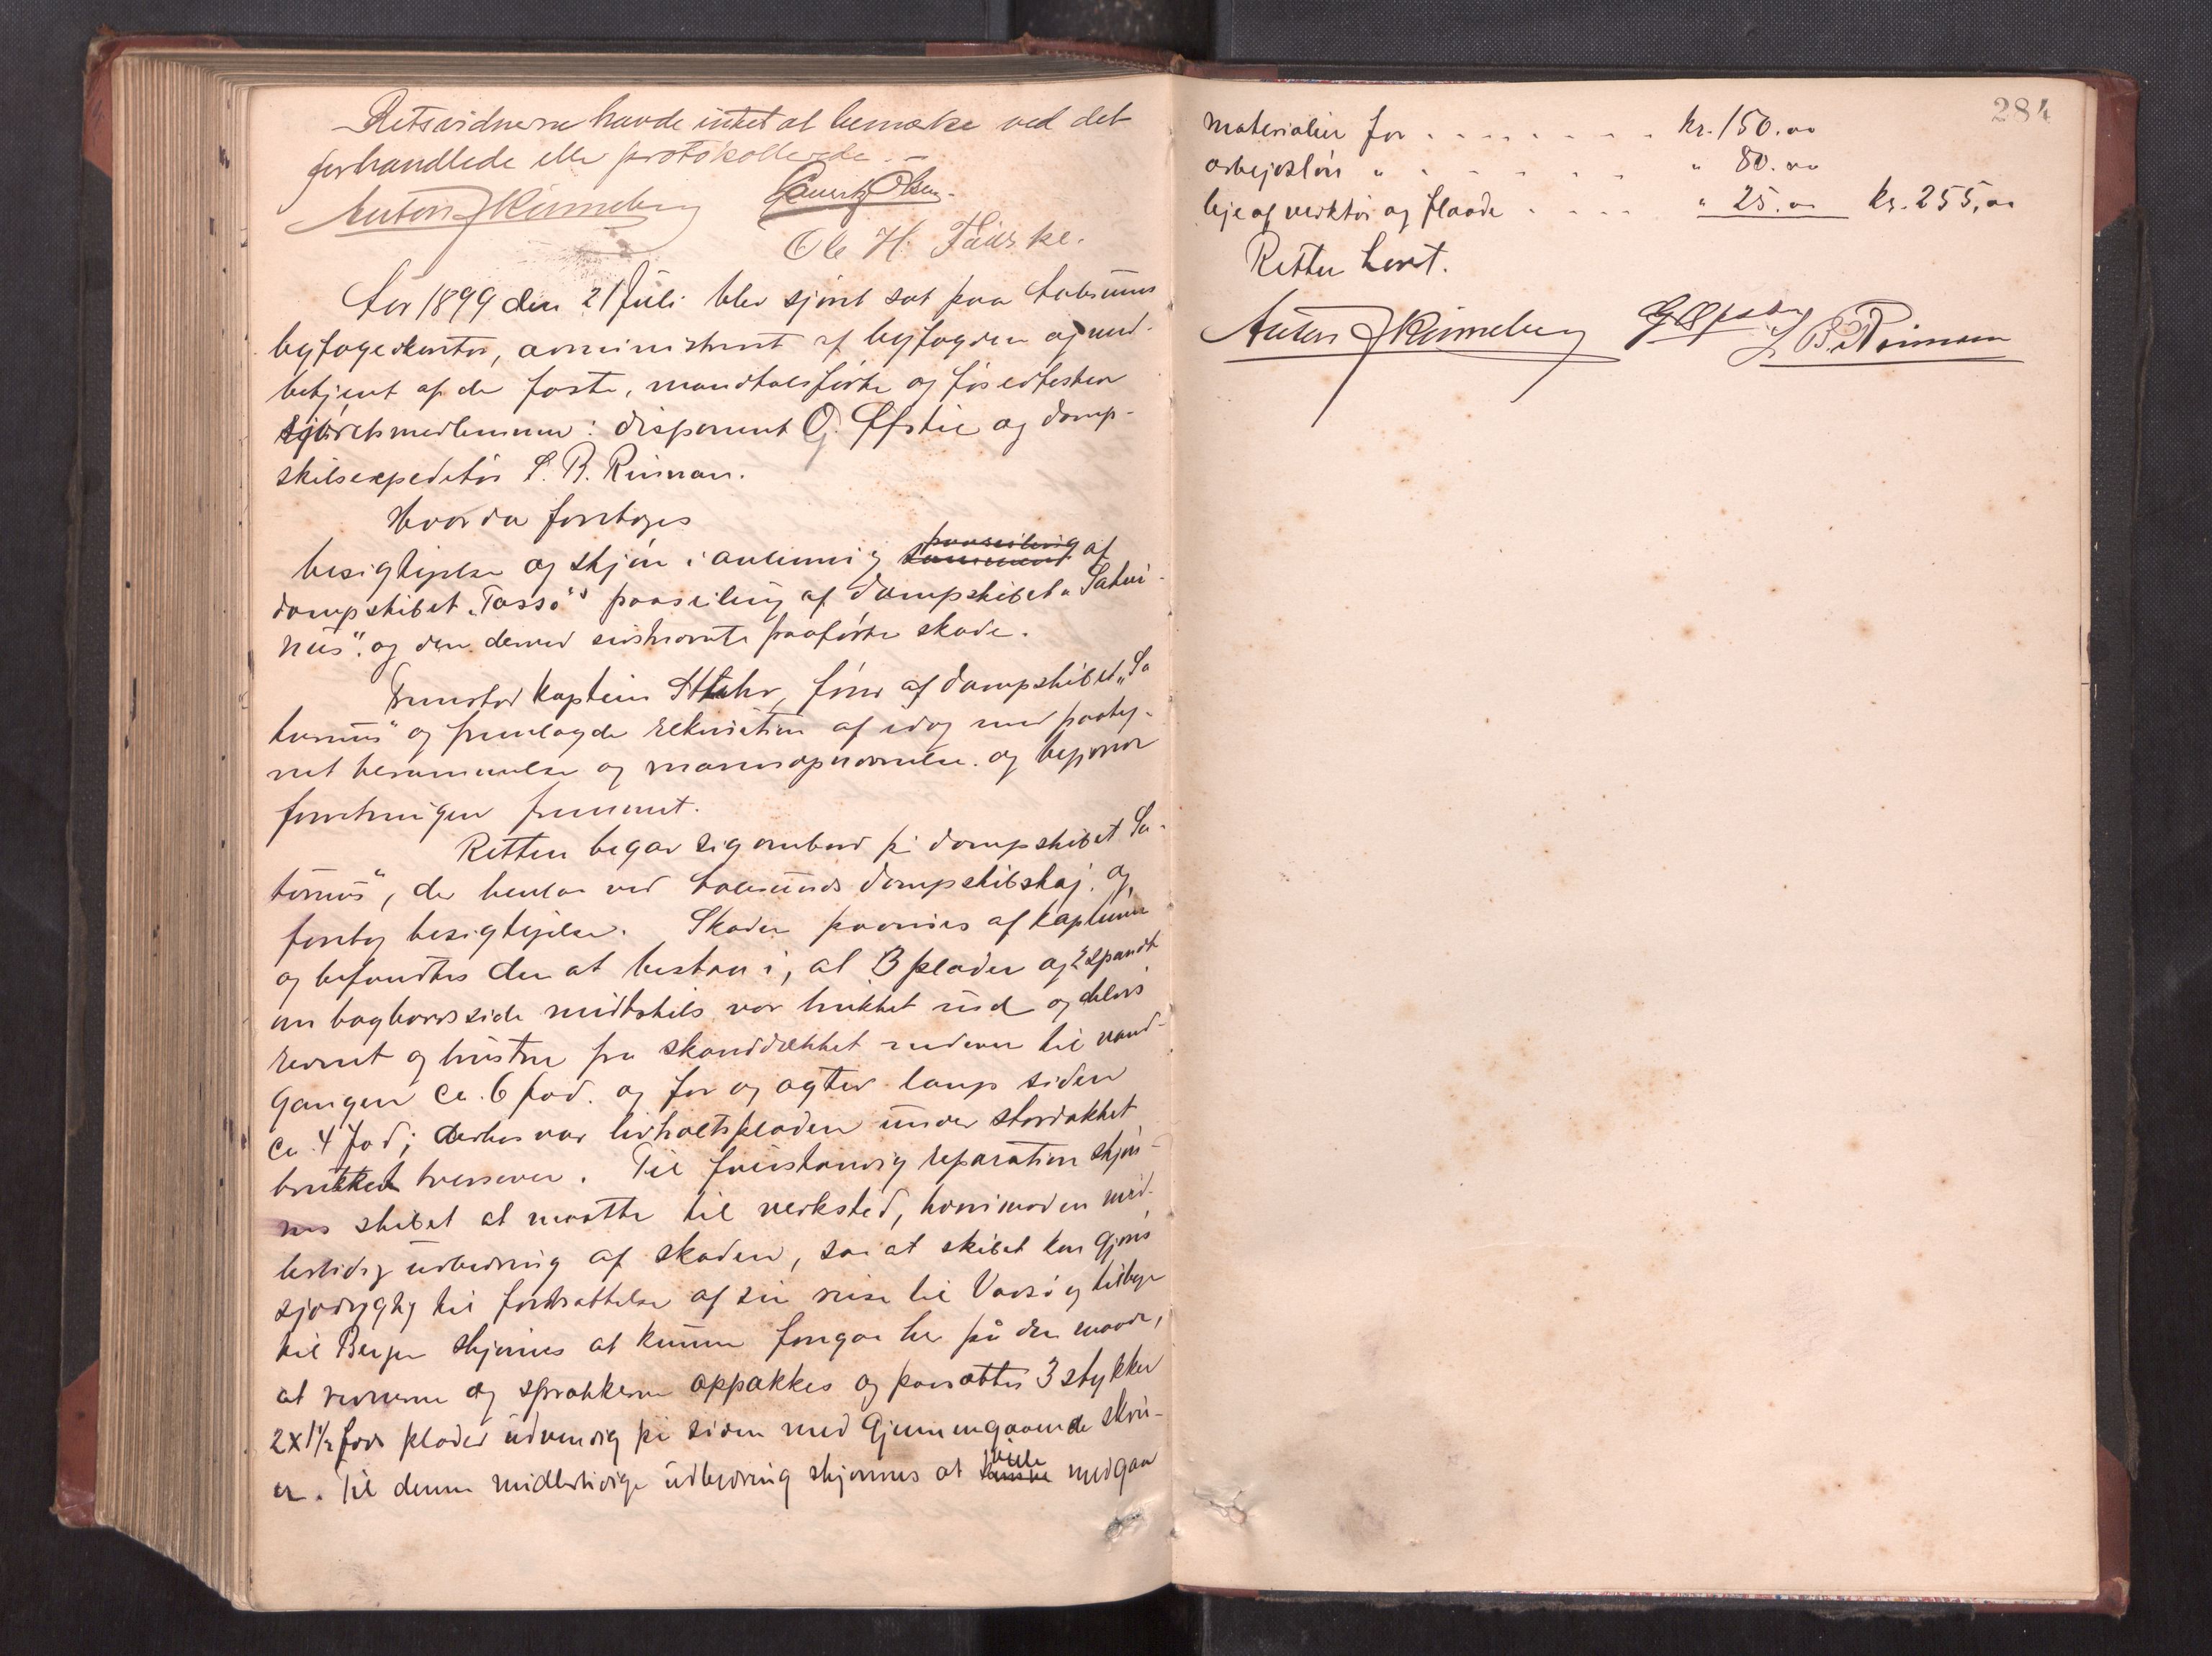 Retsvidnerne havde intet at bemærke ved det
forhandlede eller protokollerede. –
Anton J Rinneberg Lauritz Olsen.
Ole H. Fauske.
Aar 1899 den 21 Juli blev sjøret sat paa Aalesunds
byfogedkontor, administreret af byfogden og med-
betjent af de faste, mandtalsførte og før edfestede
sjøretsmedlemmer: disponent O. J. Øfstie og damp-
skibsexpeditør L. B. Reiman.
Hvorda foretoges
besigtigelse og skjøn i anledning af
dampskibet "Tasso"s paaseiling af dampskibet "Satur-
nus" og den derved sidstnævnte paaførte skade.
Fremstod kaptein, fører af dampskibet "Sa
turnus" og fremlagde rekvisition af idag med paateg-
net berammelse og mandsopnævnelse og begjærer
forretningen fremmet.
Retten begav sig ombord på dampskibet "Sa-
turnus", der henlaa ved Aalesunds dampskibskaj og
foretog besigtigelse. Skaden paavises af kapteinen
og befandtes den at bestaa i, at 3 plader og 2 spandt
om bagbords side midtskibs var trykket ind og delvis
revnet og brusten fra skanddækket nedover til vand-
gangen ca. 6 fod. og for og agter langs siden
ca. 4 fod; derhos var livholtspladen under stordækket
brukket tversover. Til fuldstændig reparation skjøn-
nes skibet at maatte til verksted, hvorimod en mid-
lertidig udbedring af skaden, saa at skibet kan gjøres
sjødygtig til fortsættelse af sin reise til Vadsø og tilbage
til Bergen skjønnes at kunne foregaa her på den maade,
at revnerne og sprækkerne oppakkes og paasættes 3 stykker
2 x 1 1/2 fods plader udvendig på siden med gjennemgaaende skru-
er. Til denne midlertidige udbedring skjønnes at ville medgaa
284
materialier for . . . . . . . kr. 150.00
arbejdsløn " . . . . . " 80.00
leje af verktøi og flaade . . . . " 25.00 kr. 255,00
Retten hævet.
Anton J Rinneberg O J Øfstie L B Reimann